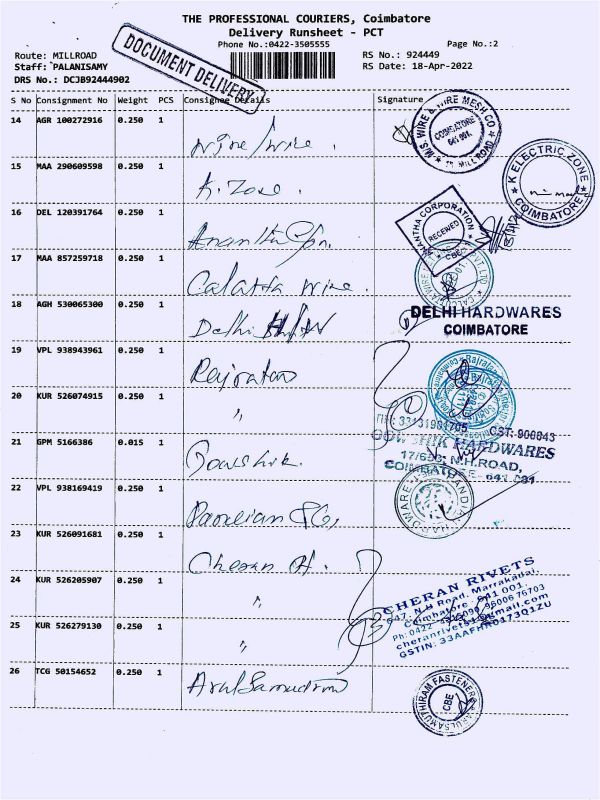 THE PROFESSIONAL COURIERS, Coimbatore
Delivery Runsheet - PCT
Phone No.:0422-3505555
Page No.:2
Route: MILLROAD
RS No.: 924449
Staff: PALANISAMY
RS Date: 18-Apr-2022
DRS No.: DCJB92444902
DOCUMENT DELIVERY
S No Consignment No Weight PCS Consignee Details Signature
14 AGR 100272916 0.250 1 Wire/Wire.
M.S. WIRE & WIRE MESH CO
COIMBATORE
641 001.
MILL ROAD
15 MAA 290609598 0.250 1 K. Zone.
K ELECTRIC ZONE
COIMBATORE
16 DEL 120391764 0.250 1 Anantha
ANANTHA CORPORATION
RECEIVED
CBE
17 MAA 857259718 0.250 1 Calcutta Wire.
18 AGH 530065300 0.250 1 Delhi
DELHI HARDWARES
COIMBATORE
19 VPL 938943961 0.250 1 Rajratan
20 KUR 526074915 0.250 1 "
CST: 900843
GOWSHIK HARDWARES
N.H.ROAD,
COIMBATORE - 641 001
21 GPM 5166386 0.015 1 Gowshik.
22 VPL 938169419 0.250 1
HARDWARE
23 KUR 526091681 0.250 1 Cheran H.
24 KUR 526205907 0.250 1 "
CHERAN RIVETS
N H Road, Marrakadai,
Coimbatore - 641 001.
25 KUR 526279130 0.250 1 "
26 TCG 50154652 0.250 1 Arulsamudram
ARULSAMUTHIRAM FASTENERS
CBE